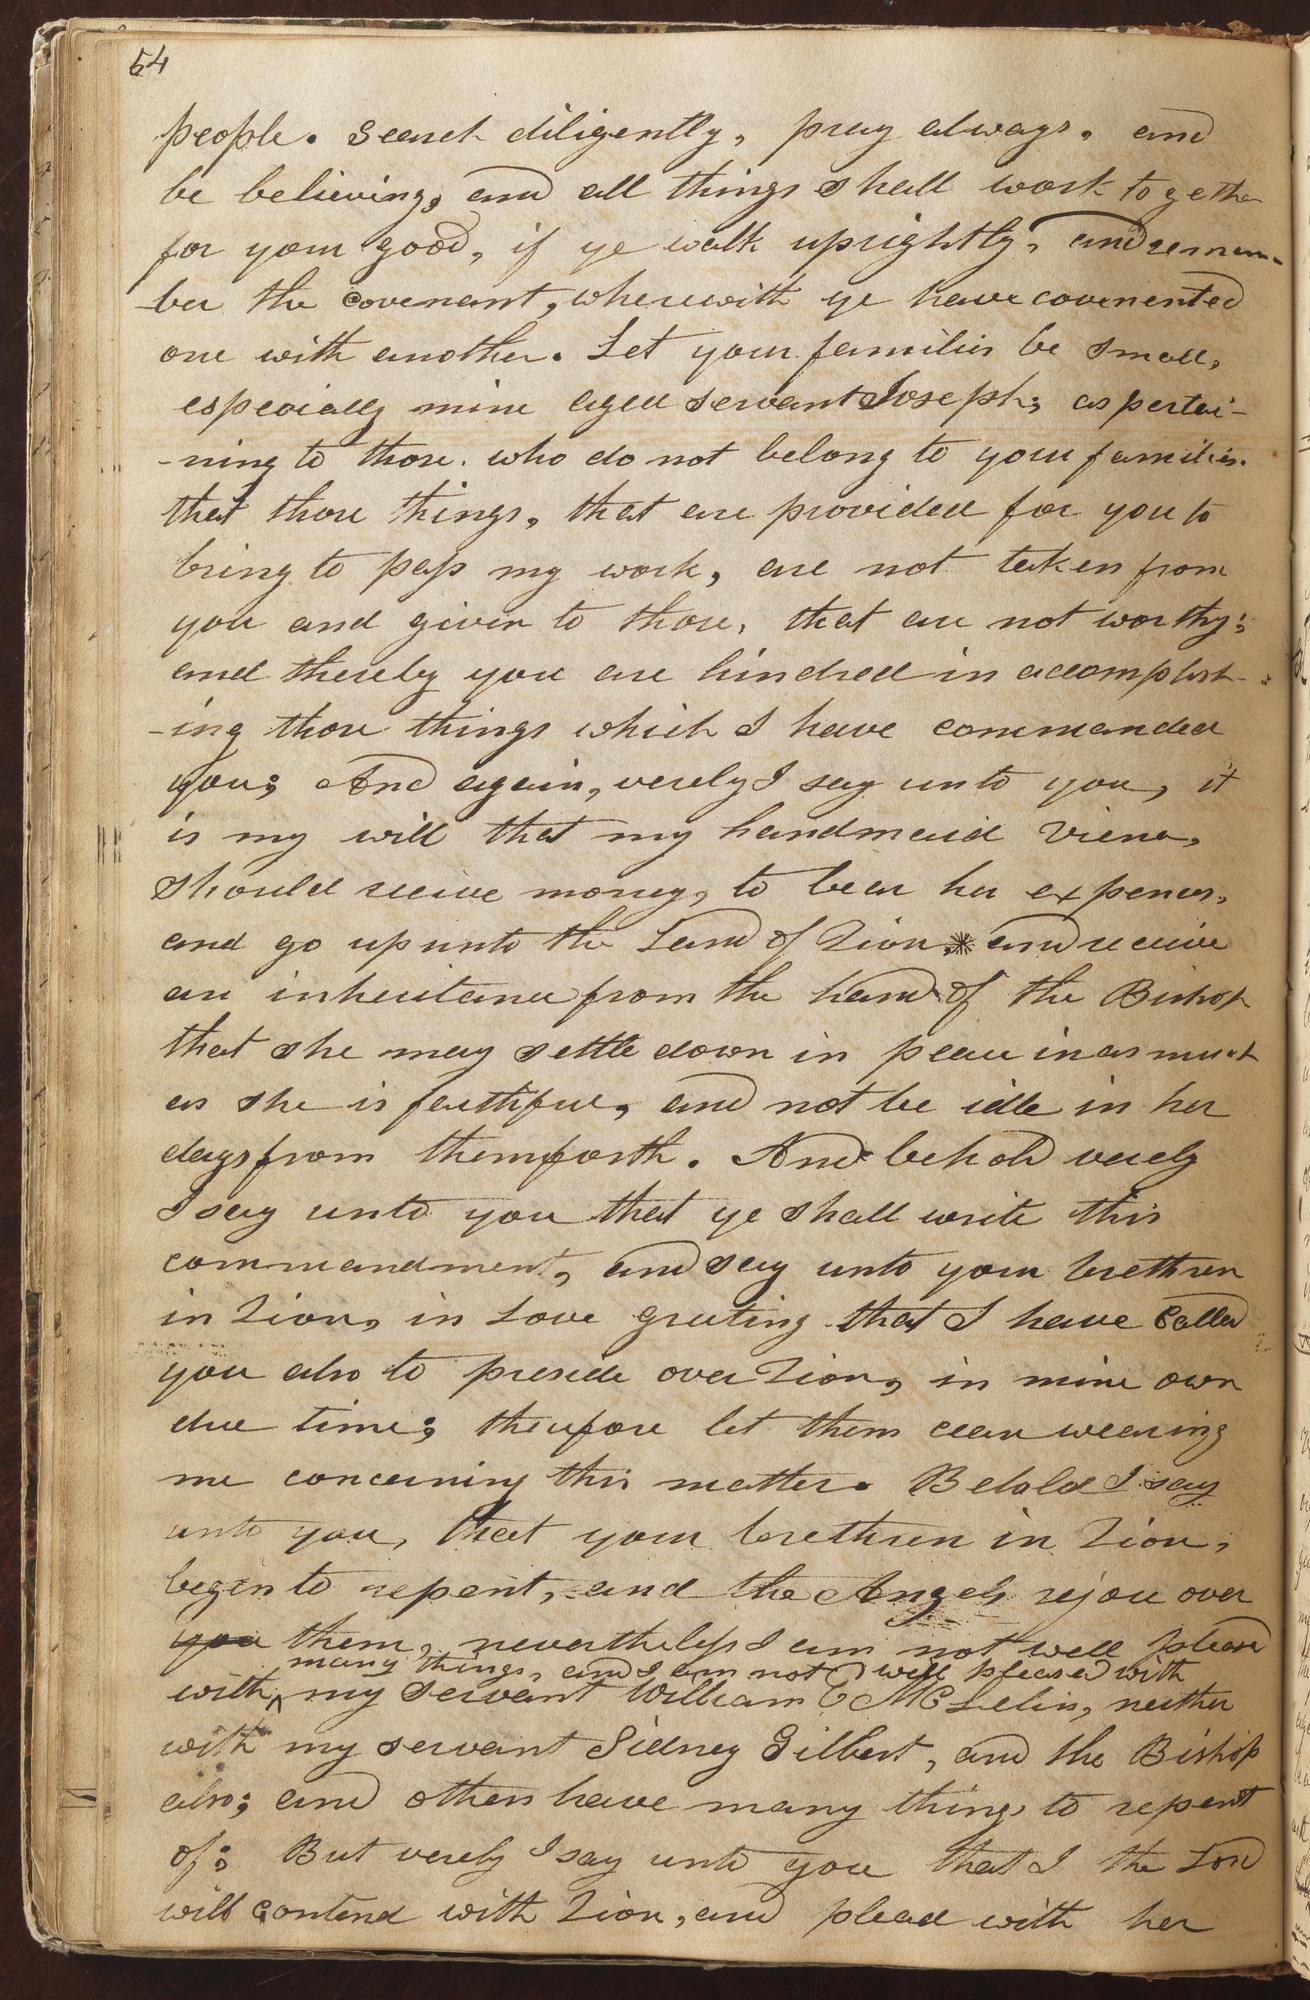 54
people. Search diligently, pray always, and
be believing, and all things shall work together
for your good, if ye walk uprightly, and remem-
-ber the covenant, wherewith ye have covenented
one with another. Let your families be small,
especially mine aged servant Joseph; as pertai-
-ning to those. who do not belong to your families.
that those things, that are provided for you to
bring to pass my work, are not taken from
you and given to those, that are not worthy;
and thereby you are hindred in accomplish-
-ing those things which I have commanded
you; And again, verely I say unto you, it
is my will that my handmaid Viena,
should receive money, to bear her expences,
and go up unto the Land of Zion,* and receive
an inheritance from the hand of the Bishop
that she may settle down in peace in as much
as she is faithful, and not be idle in her
days from thenceforth. And behold verely
I say unto you that ye shall write this
commandment, and say unto your brethren
in Zion, in Love greeting that I have called
you also to preside over Zion, in mine own
due time; therefore let them cease wearing
me concerning this matter. Behold I say
unto you, that your brethren in Zion,
begin to repent, and the Angels rejoice over
you them, nevertheless I am not well pleased
many things, and I am not well pleased with
with ^ my servant William E McLelin, neither
with my servant Sidney Gilbert, and the Bishop
also; and others have many things to repent
of; But verely I say unto you that I the Lord
will contend with Zion, and plead with her